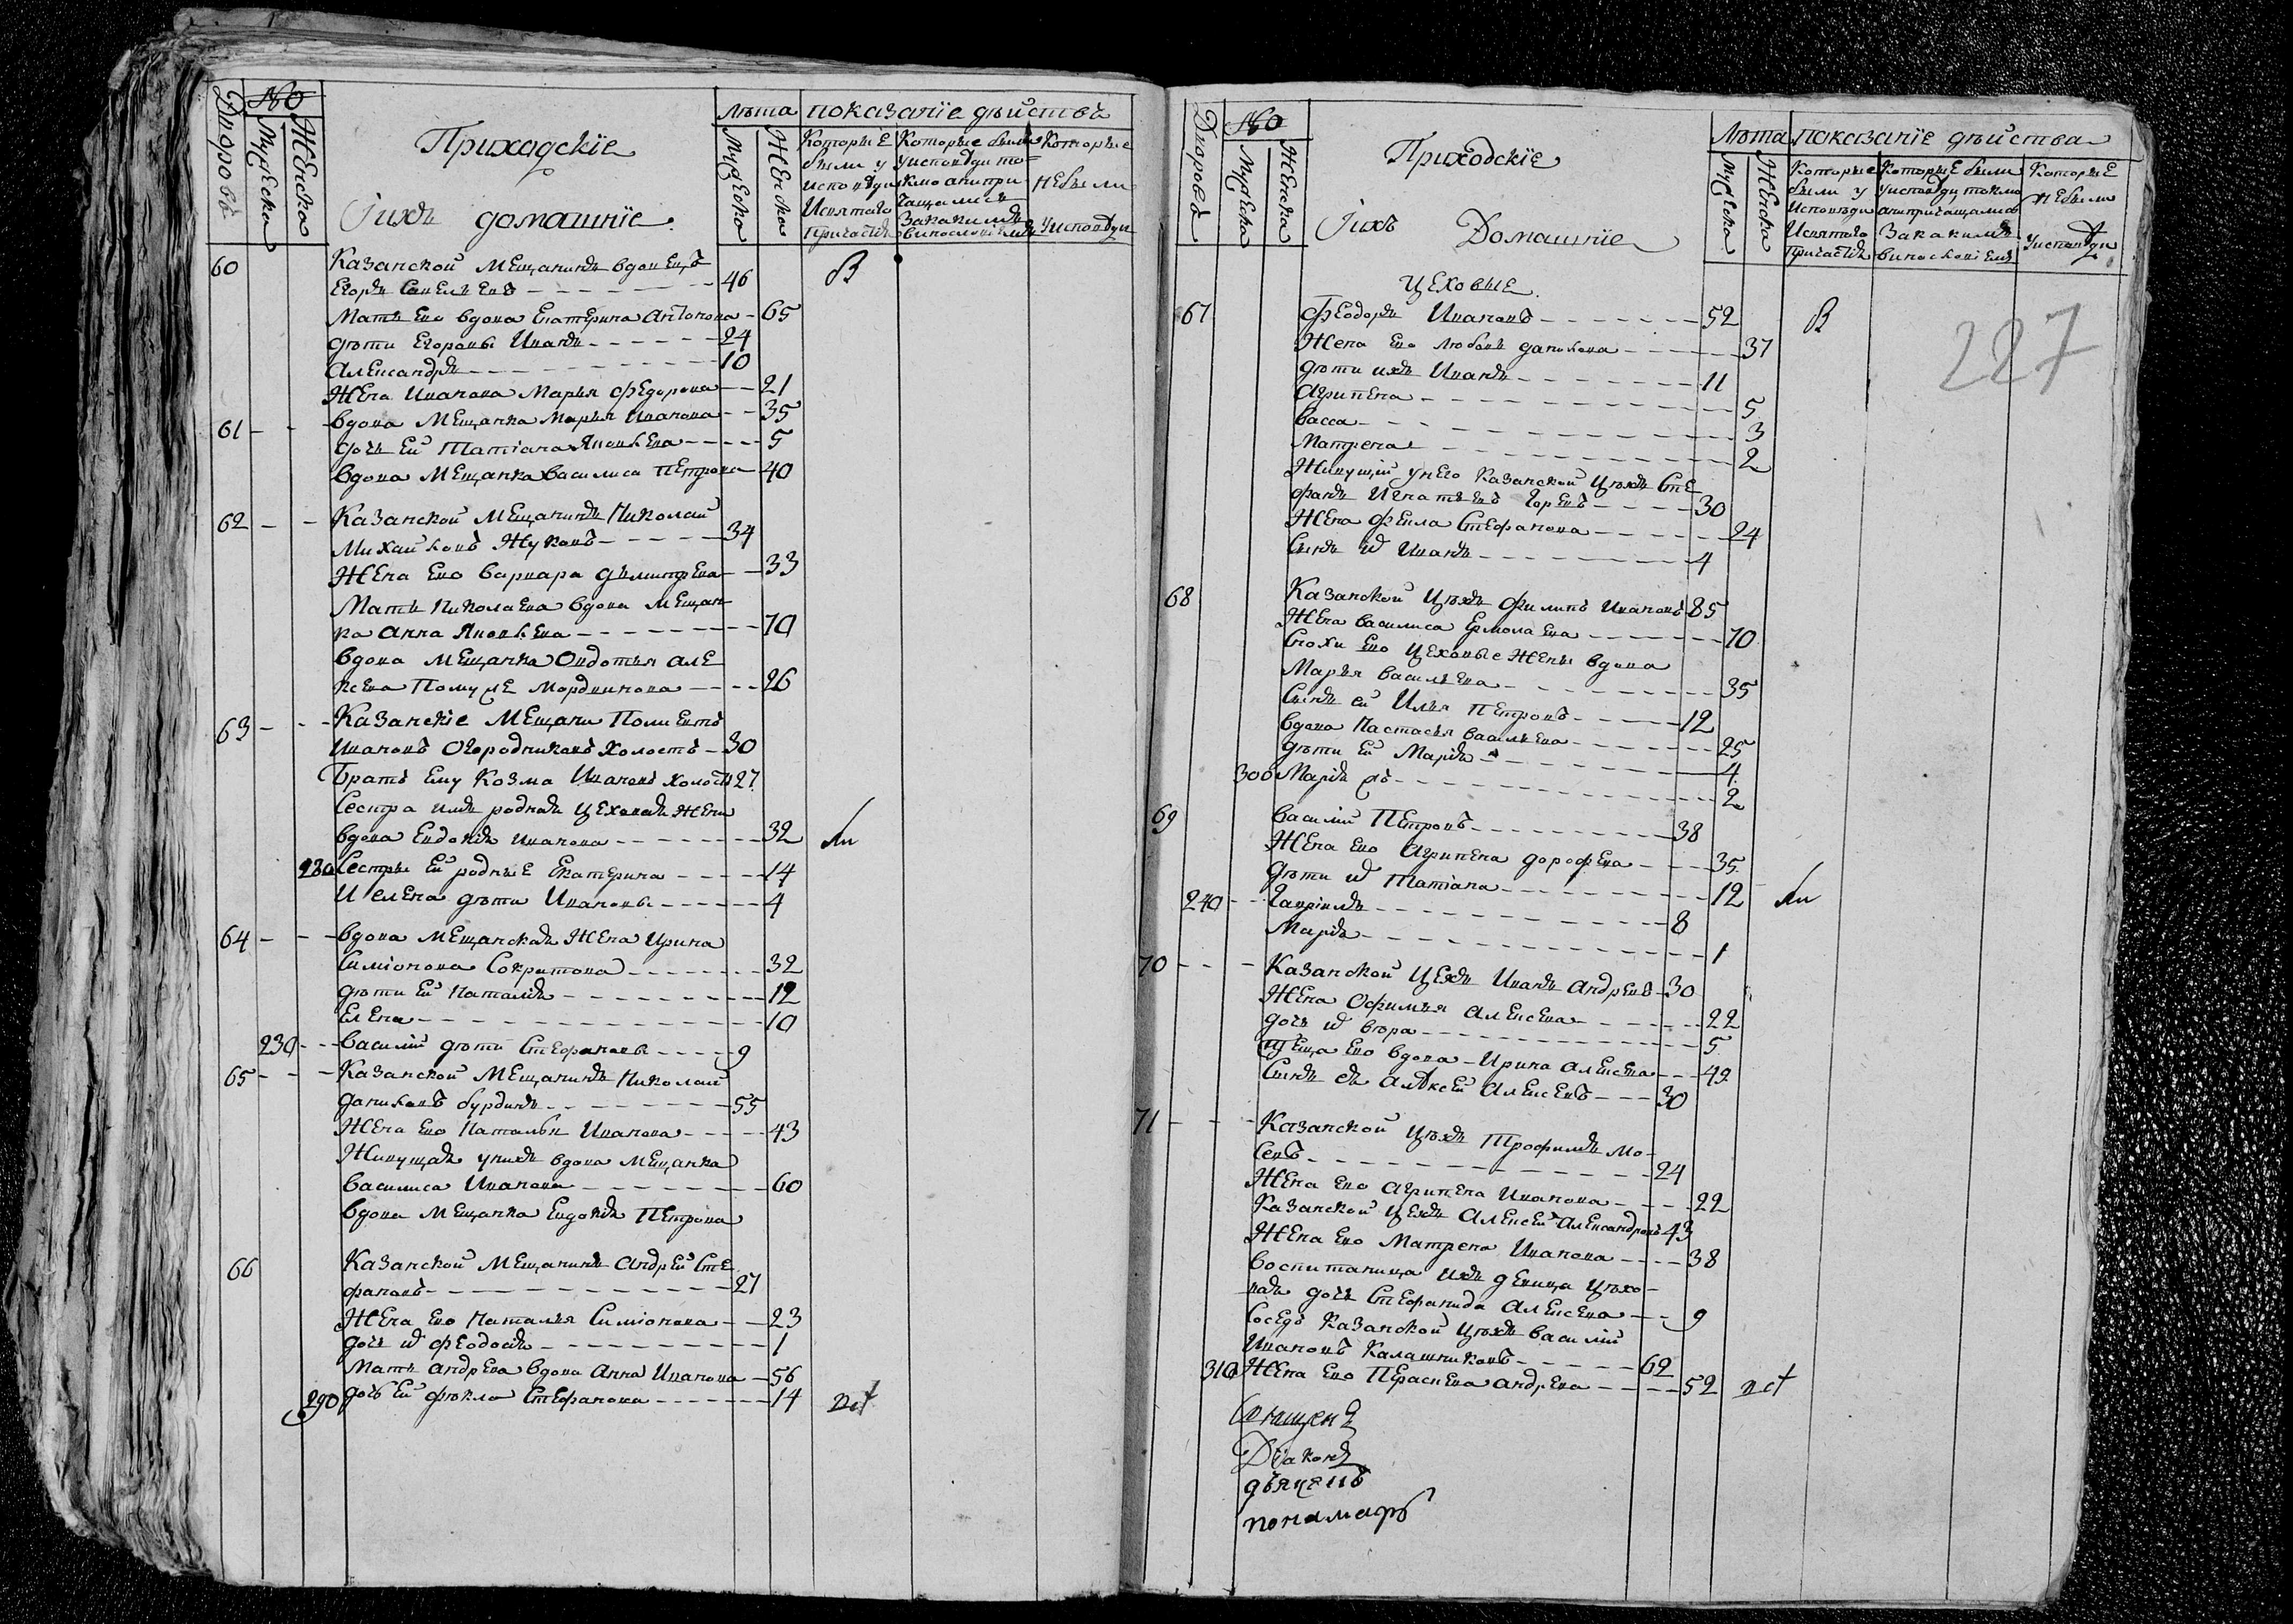 №
Дворовъ
Мужеска
Женска
Приходскїе
Лѣта
показанїе дѣйствъ
Мужеска
Женска
Которые были у исповѣди и святаго причастїя
Которые были у исповѣди токмо а не причащались
Которые не были у исповѣди
Iихъ домашнїе
60 Казанской мещанинъ вдовецъ
Егоръ Савельевъ 46 В
Мать ево вдова Екатерина Антонова 65
дѣти Егоровы Иванъ 24
Александръ 10
Жена Иванова Марья Федорова 21
61 вдова мещанка Марья Иванова 35
дочь ей Татiана Яковлева 5
вдова мещанка Василиса Петрова 40
62 Казанской мещанинъ Николай
Михайловъ Жуковъ 34
Жена ево Варвара Дмитрева 33
Мать Николаева вдова мещан
ка Анна Яковлева 70
вдова мещанка Овдотья Але
ксева по муже Мордвинова 26
63 Казанскiе мещани Полиевтъ
Ивановъ Огородниковъ холостъ 30
Братъ ему Козма Ивановъ холостъ 27
Сестра имъ родная цеховая жена
вдова Евдокiя Иванова 32 ли
280 Сестры ей родные Екатерина 14
И Елена дѣти Ивановы 4
64 вдова мещанская жена Ирина
Симiонова Сокритова 32
дѣти ей Наталiя 12
Елена 10
230 Василiй дѣти Стефановы 9
65 Казанской мещанинъ Николай
Даниловъ Бурдинъ 55
Жена ево Наталья Иванова 43
Живущая у нихъ вдова мещанка
Василиса Иванова 60
вдова мещанка Евдокiя Петрова
66 Казанской мещанинъ Андрей Сте
фановъ 27
Жена ево Наталья Симiонова 23
дочь их Феодосiя 1
Мать Андрева вдова Анна Иванова 56
290 дочь ей Фiокла Стефанова 14
№
Дворовъ
Мужеска
Женска
Приходскїе
Лѣта
показанїе дѣйства
Мужеска
Женска
Которые были у исповѣди и святаго причастїя
Которые были у исповѣди токмо а не причащались
Которые не были у исповѣди
Iихъ Домашнїе
227
Цеховые
67 Феодоръ Ивановъ 52 В
Жена ево Любовь Данилова 37
дѣти ихъ Иванъ 11
Агрипена 5
Васса 3
Матрена 2
Живущiй у него Казанской цѣхъ Сте
фанъ Игнатьевъ 30
Жена Фекла Стефанова 24
Сынъ их Иванъ 4
68 Казанской цѣхъ Филипъ Ивановъ 85
Жена Василиса Ермолаева 70
Снохи ево цеховые жены вдова
Марья Васильева 35
Сынъ ей Илья Петровъ 12
вдова Настасья Васильева 25
дѣти ей Марiя 4
300 Марiя жъ 2
69 Василiй Петровъ 38
Жена ево Агрипена Дорофева 35
дѣти их Татiана 12 ли
240 Гаврiилъ 8
Марiя 1
70 Казанской цехъ Иванъ Андревъ 30
Жена Офимья Алексева 22
дочь их Вѣра 5
Теща ево вдова Ирина 49
Сынъ ея Алѣксей Алексевъ 30
71 Казанской цѣхъ Трофимъ Мо
севъ 24
Жена ево Агрипена Иванова 22
Казанской цехъ Алексей Александровъ 43
Жена ево Матрена Иванова 38
воспитаница ихъ девица цѣхо
вая дочь Стефанида Алексева 9
Соседъ Казанской цѣхъ Василiй
Ивановъ Калашниковъ 62
310 Жена ево Параскева Андрева 52
Священъ
Дiаконъ
дьячекъ
пономарь